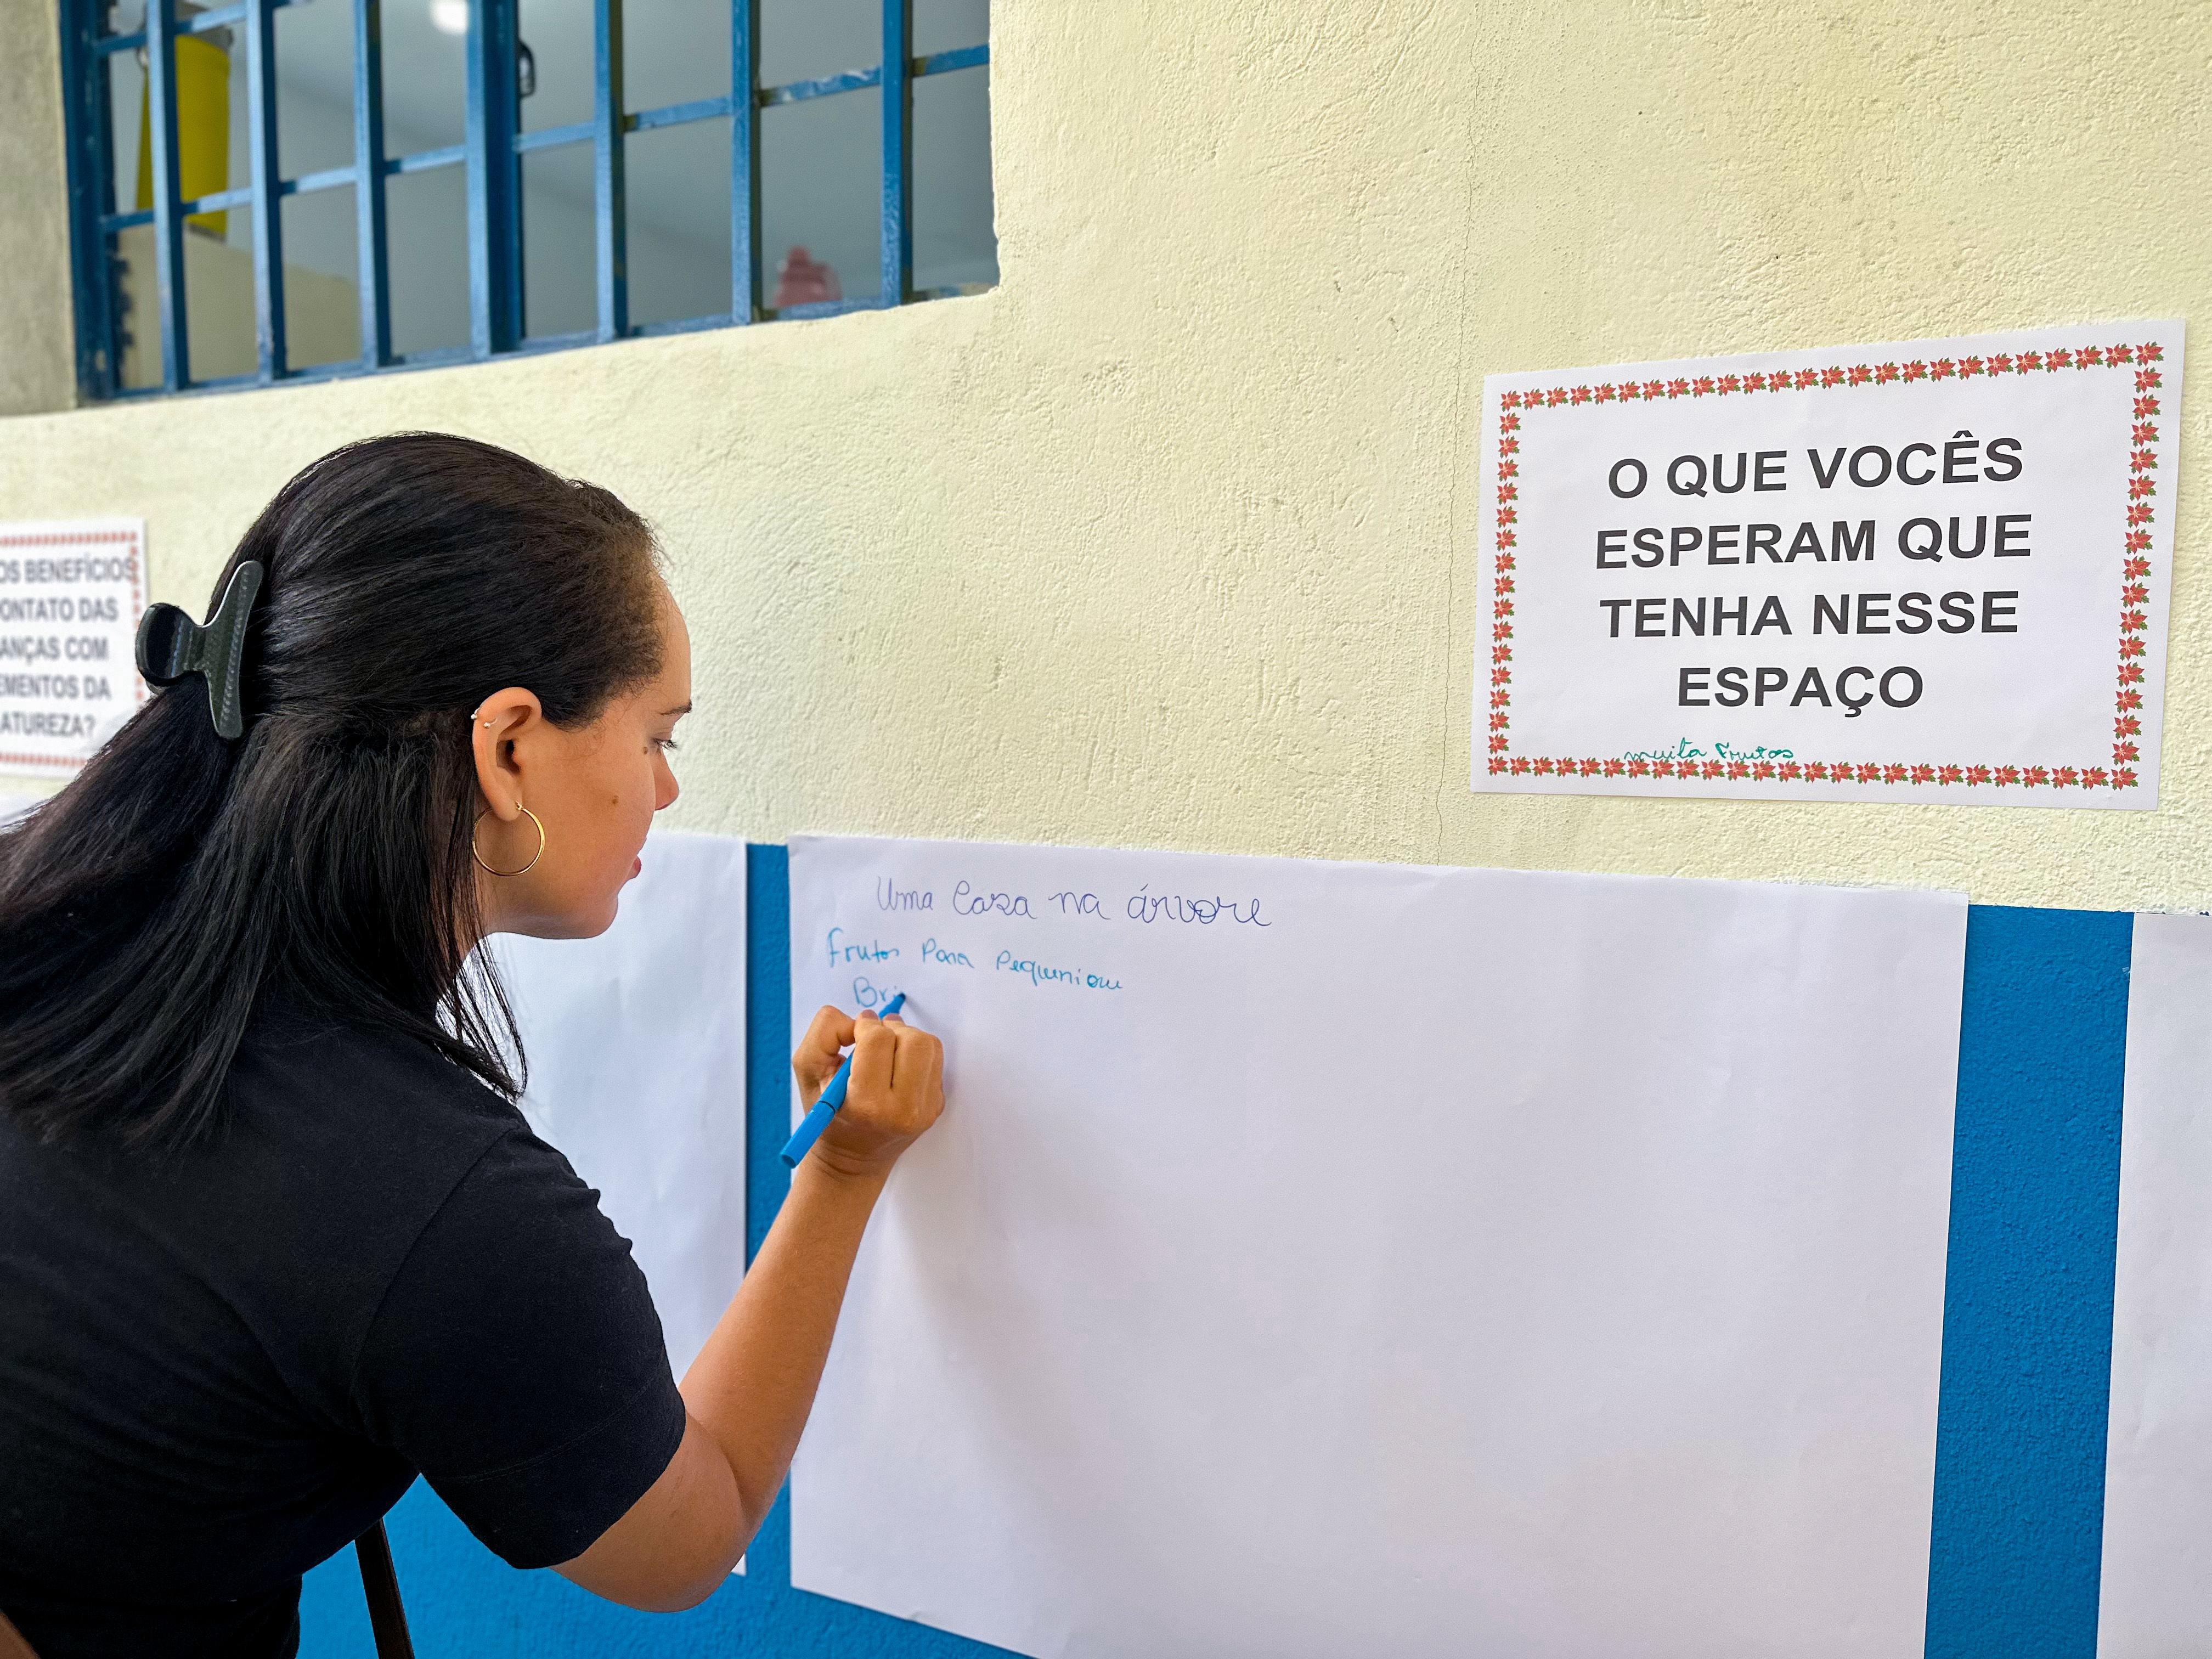 OS BENEFÍCIOS
ONTATO DAS
ANÇAS COM
EMENTOS DA
ATUREZA?
O QUE VOCÊS
ESPERAM QUE
TENHA NESSE
ESPAÇO
muita Frutos
Uma Casa na árvore
Frutos Para
Bri